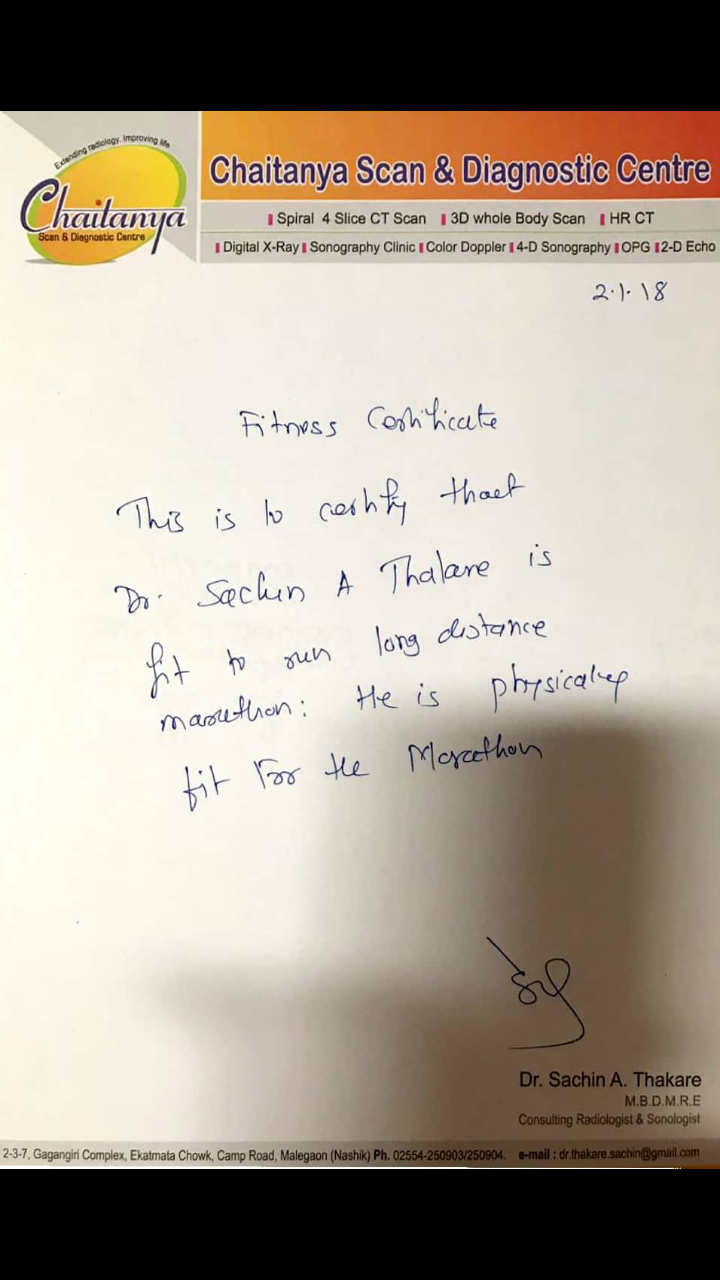 Extending radiology. Improving life
Chaitanya
Scan & Diagnostic Centre
Chaitanya Scan & Diagnostic Centre
Spiral 4 Slice CT Scan 3D whole Body Scan HR CT
Digital X-Ray Sonography Clinic Color Doppler 4-D Sonography OPG 2-D Echo
2.1.18
Fitness Certificate
This is to certify that
Dr. Sachin A Thakare is
fit to run long distance
marathon: He is physically
fit for the Marathon
Dr. Sachin A. Thakare
M.B.D.M.R.E
Consulting Radiologist & Sonologist
2-3-7, Gagangiri Complex, Ekatmata Chowk, Camp Road, Malegaon (Nashik) Ph. 02554-250903/250904. e-mail : dr.thakare.sachin@gmail.com